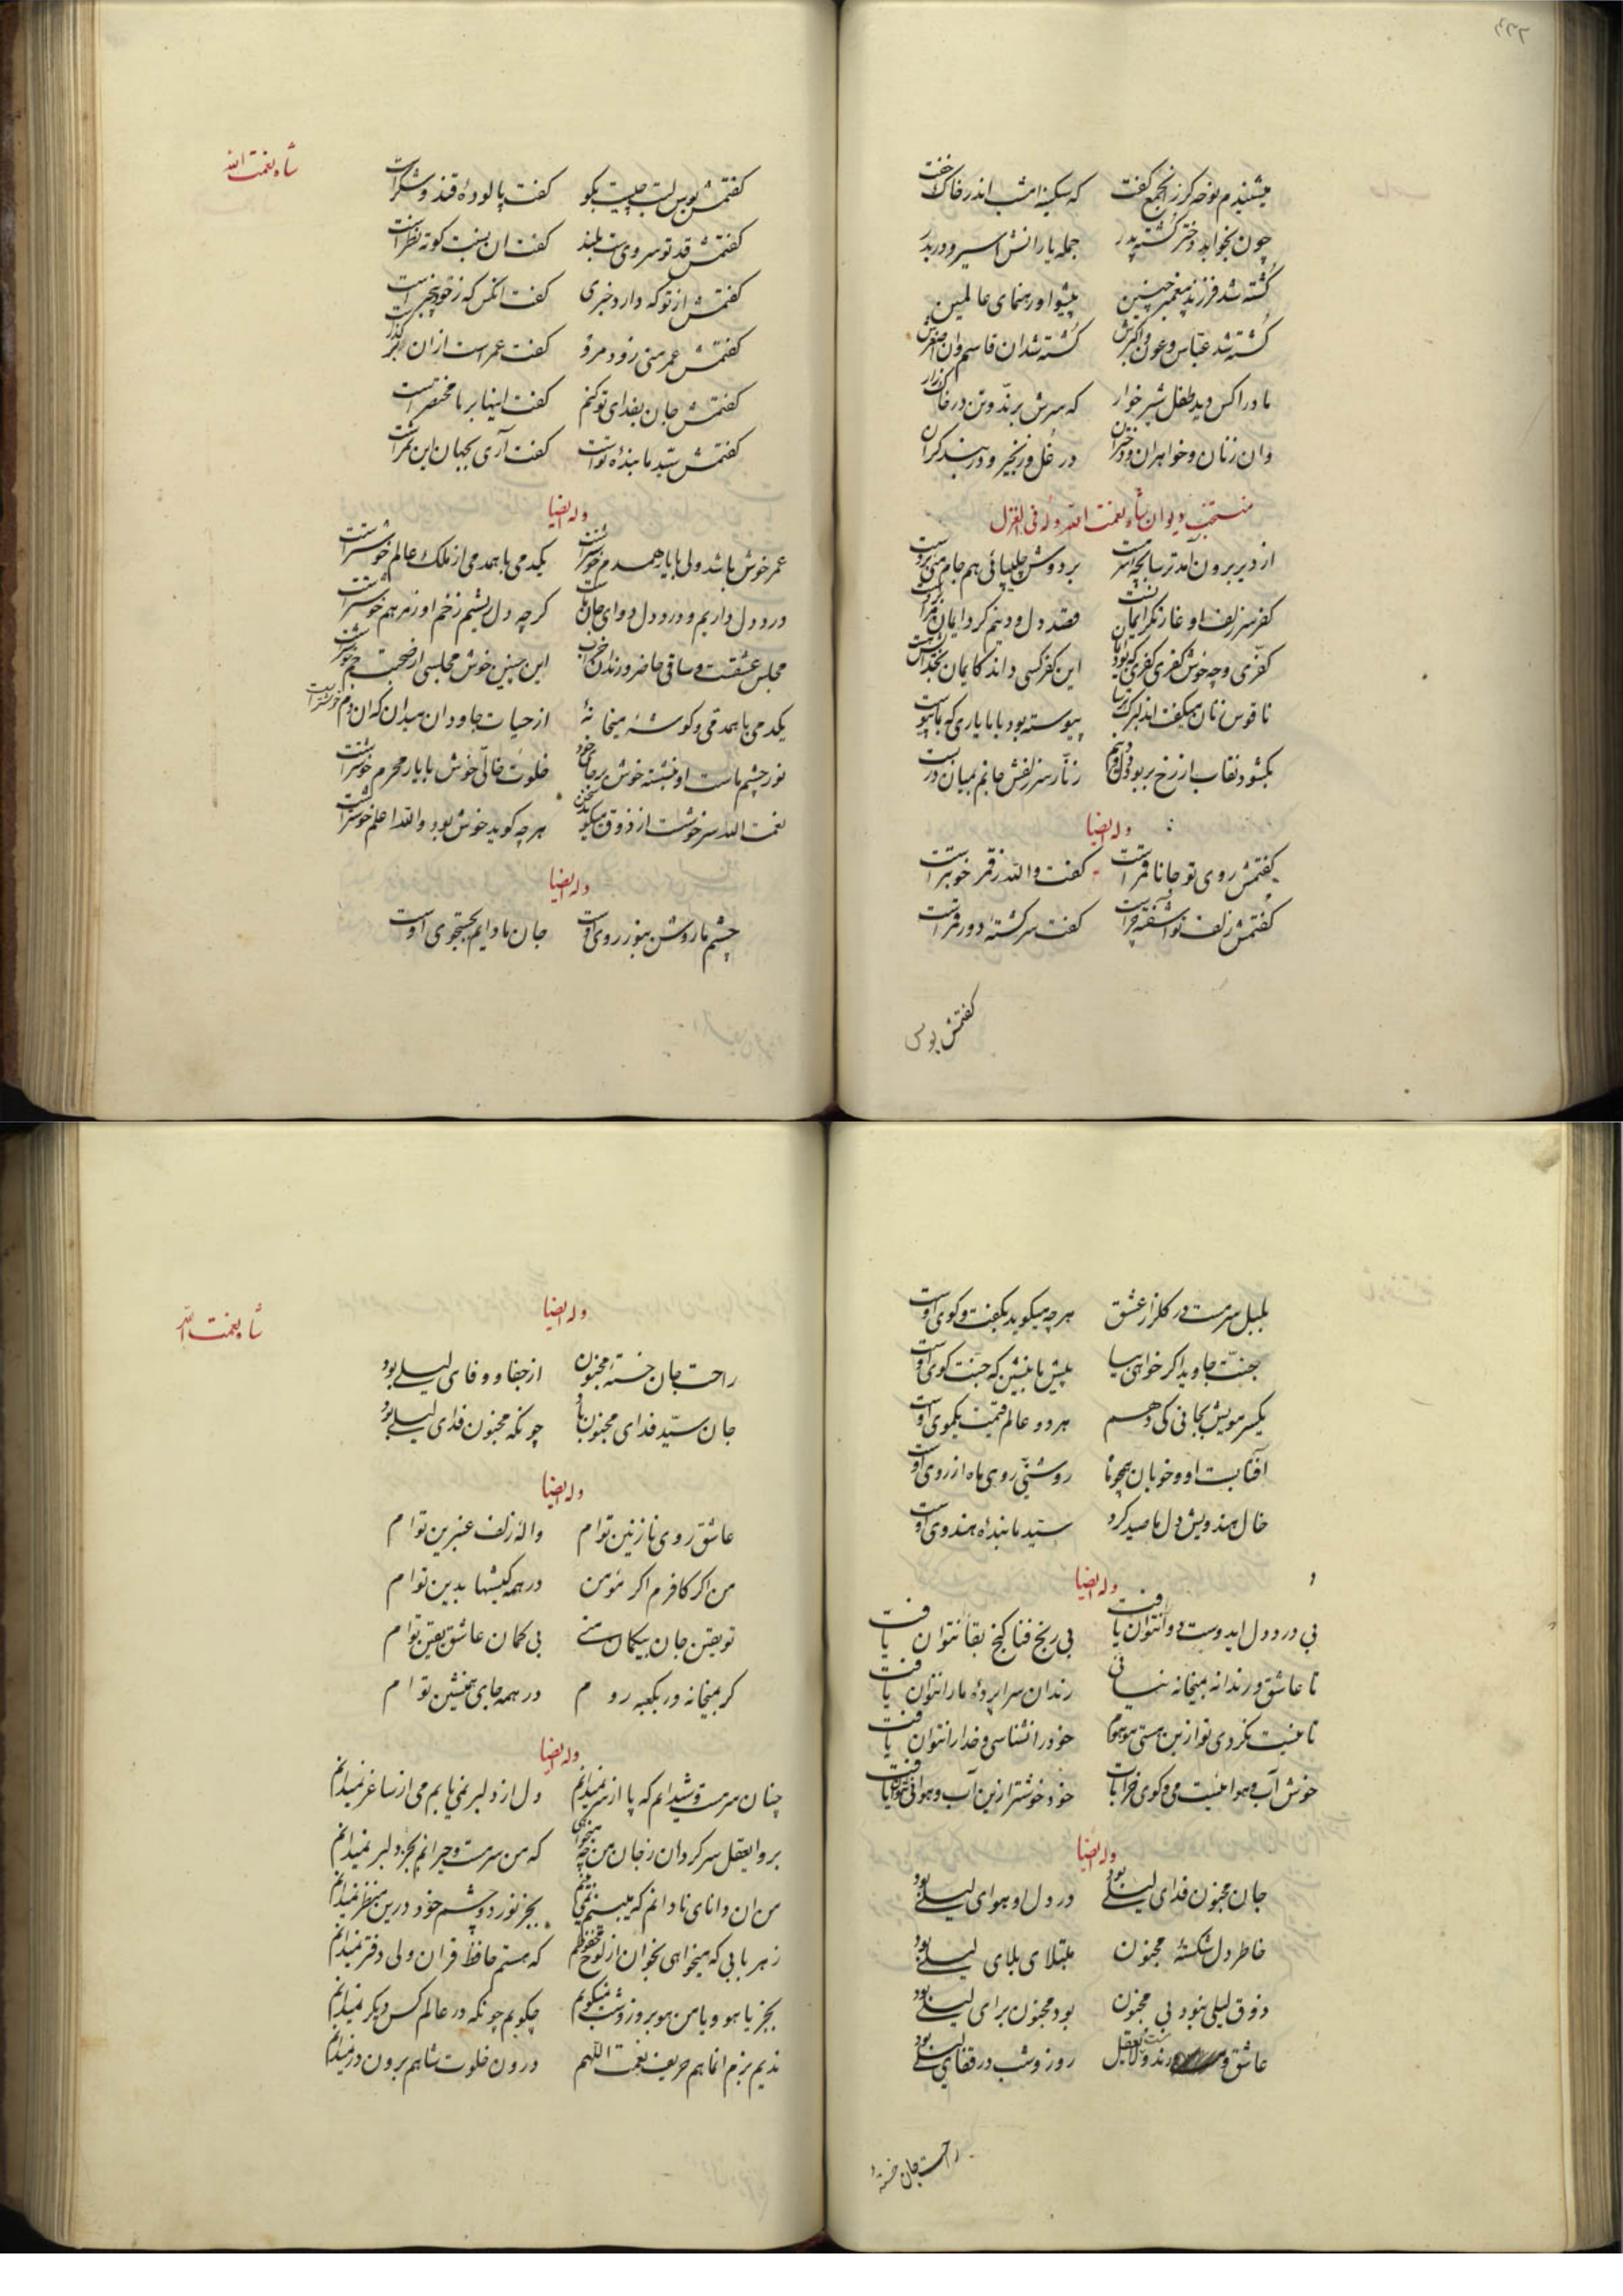 میشنیدم نوحه کز انجم گفت که سکینه امشب اندر خاک خفت
چون بخوابد دختر کشته پدر جمله یارانش اسیر و دربدر
کُشته شد فرزند پیغمبر چنین پیشوا و رهنمای عالمین
کُشته شد عباس و عون و اکبرش کُشته شد ان قاسم و ان اصغرش
مادرا کس دید طفل شیر خوار که سرش برند و تن در خاک زار
وان زنان و خواهران و دختران در غُل و زنجیر و در بند گران
منتخب دیوان شاه نعمت الله وله فی الغزل
از دیر برون آمد ترسا بچه سرمست بر دوش چلیپائی هم جام می بر دست
کفر سر زلف او غارتگر ایمان است قصد دل و دینم کرد ایمان مرا بشکست
کفری و چه خوش کفری کفری که بود ایمان این کفر کسی داند کایمان بخدا هست
ناقوس زنان میکفت اندلبرک ترسا پیوسته بود با ما یاری که بما پیوست
بکشود نقاب از رخ بربود دل و دینم زنّار سر زلفش جانم بمیان دربست
وله ایضا
کفتمش روی تو جانا قمر است کفت والله ز قمر خوبتر است
کفتمش زلف تو آشفته چراست کفت سرکشتهٔ دور قمر است
کفتمش بوس
شاه نعمت الله
کفتمش بوس لبت چیست بکو کفت پالودهٔ قند و شکر است
کفتمش قد تو سرویست بلند کفت ان بنسبت کوته نظر است
کفتمش از تو که دارد خبری کفت انکس که ز خود بیخبر است
کفتمش عمر منی زود مرو کفت عمر است از ان در کذر است
کفتمش جان بفدای تو کنم کفت اینها بر ما مختصر است
کفتمش سیّد ما بندهٔ تو است کفت آری بجهان این سمر است
وله ایضا
عمر خوش باشد ولی با یار همدم خوشتر است یکدمی با همدمی از ملک عالم خوشتر است
درد دل داریم و درد دل دوای جان ماست کرچه دل ریشیم زخم او ز مرهم خوشتر است
مجلس عشقست و ساقی حاضر و رندان خراب این چنین خوش مجلسی از صحبت جم خوشتر است
یکدمی با همدمی و کوشهٔ میخانهٔ از حیات جاودان میدان که ان دم خوشتر است
نور چشم ماست او بنشسته خوش بر جای خود خلوت خالّی خوش با یار محرم خوشتر است
نعمت الله سر خوشست از ذوق میکوید سخن هر چه کوید خوش بود والله اعلم خوشتر است
وله ایضا
چشم ما روشن بنور روی اوست جان ما دایم بجستجوی اوست
بلبل سرمست در کلزار عشق هر چه میکوید بکفت و کوی اوست
جنّت جاوید اکر خواهی بیا پیش ما بنشین که جنّت کوی اوست
یکسر مویش بجانی کی دهم هر دو عالم قیمت یکموی اوست
آفتابست او و خوبان همچو ماه روشنیّ روی ماه از روی اوست
خال هندویش دل ما صید کرد سیّد ما بندهٔ هندوی اوست
وله ایضا
بی درد دل ایدوست دوا نتوان یافت بی رنج فنا کنج بقا نتوان یافت
تا عاشق و رندانه بمیخانه نیائی رندان سراپردهٔ ما را نتوان یافت
تا نیست نکردی تو ازین هستی موهوم خود را نشناسی و خدا را نتوان یافت
خوش آب و هوائیست می و کوی خرابات خود خوشتر ازین آب و هوائی نتوان یافت
وله ایضا
جان مجنون فدای لیلی بود در دل او هوای لیلی بود
خاطر دل شکستهٔ مجنون مبتلای بلای لیلی بود
ذوق لیلی نبود بی مجنون بود مجنون برای لیلی بود
عاشق و مست و رند و لایعقل روز و شب در قفای لیلی بود
راحت جان خستهٔ
شاه نعمت الله
وله ایضا
راحت جان خستهٔ مجنون از جفا و وفای لیلی بود
جان سیّد فدای مجنون باد چونکه مجنون فدای لیلی بود
وله ایضا
عاشق روی نازنین توام والهٔ زلف عنبرین توام
من اکر کافرم اکر مؤمن در همه کیشها بدین توام
تو یقین جان بیکمان منی بی کمان عاشق یقین توام
کر بمیخانه ور بکعبه روم در همه جای همنشین توام
وله ایضا
چنان سرمست و شیدایم که پا از سر نمیدانم دل از دلبر نمی یابم می از ساغر نمیدانم
برو ایعقل سرکردان ز جان من چه میخواهی که من سرمست و حیرانم بجز دلبر نمیدانم
من ان دانای نادانم که میبینم نمی بینم بجز نور دو چشم خود درین منظر نمیدانم
ز هر بابی که میخواهی بخوان از لوح محفوظم که هستم حافظ قران ولی دفتر نمیدانم
بجز یا هو و یا من هو بروز و شب نمیکویم چکویم چونکه در عالم کس دیکر نمیدانم
ندیم بزم انماهم حریف نعمت اللهم درون خلوت شاهم برون در نمیدانم